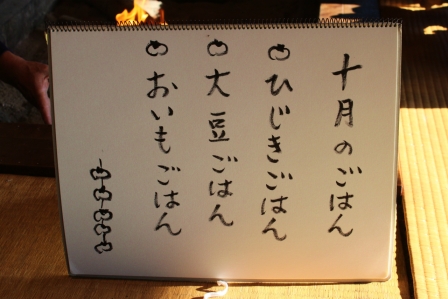 十月のごはん
ひじきごはん
大豆ごはん
おいもごはん